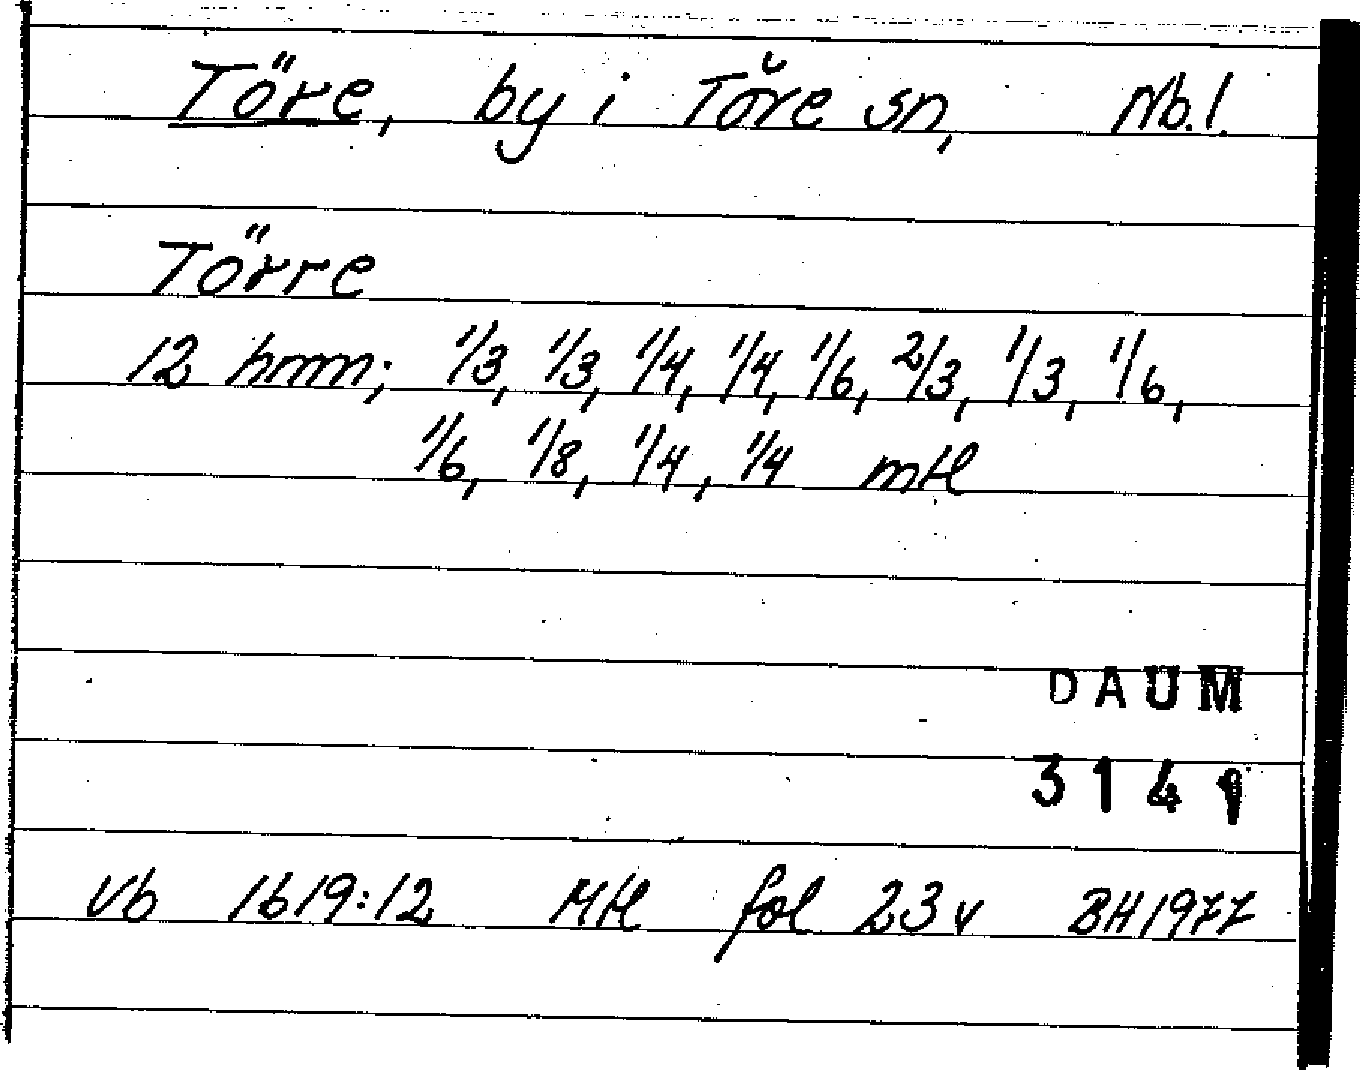 Töre, by i Töre sn, Nb.l.
Törre
12 hmn; 1/3, 1/3, 1/4, 1/4, 1/6, 2/3, 1/3, 1/6,
1/6, 1/8, 1/4, 1/4 mtl
DAUM
314
Vb 1619:12 Mtl fol 23v BH1977